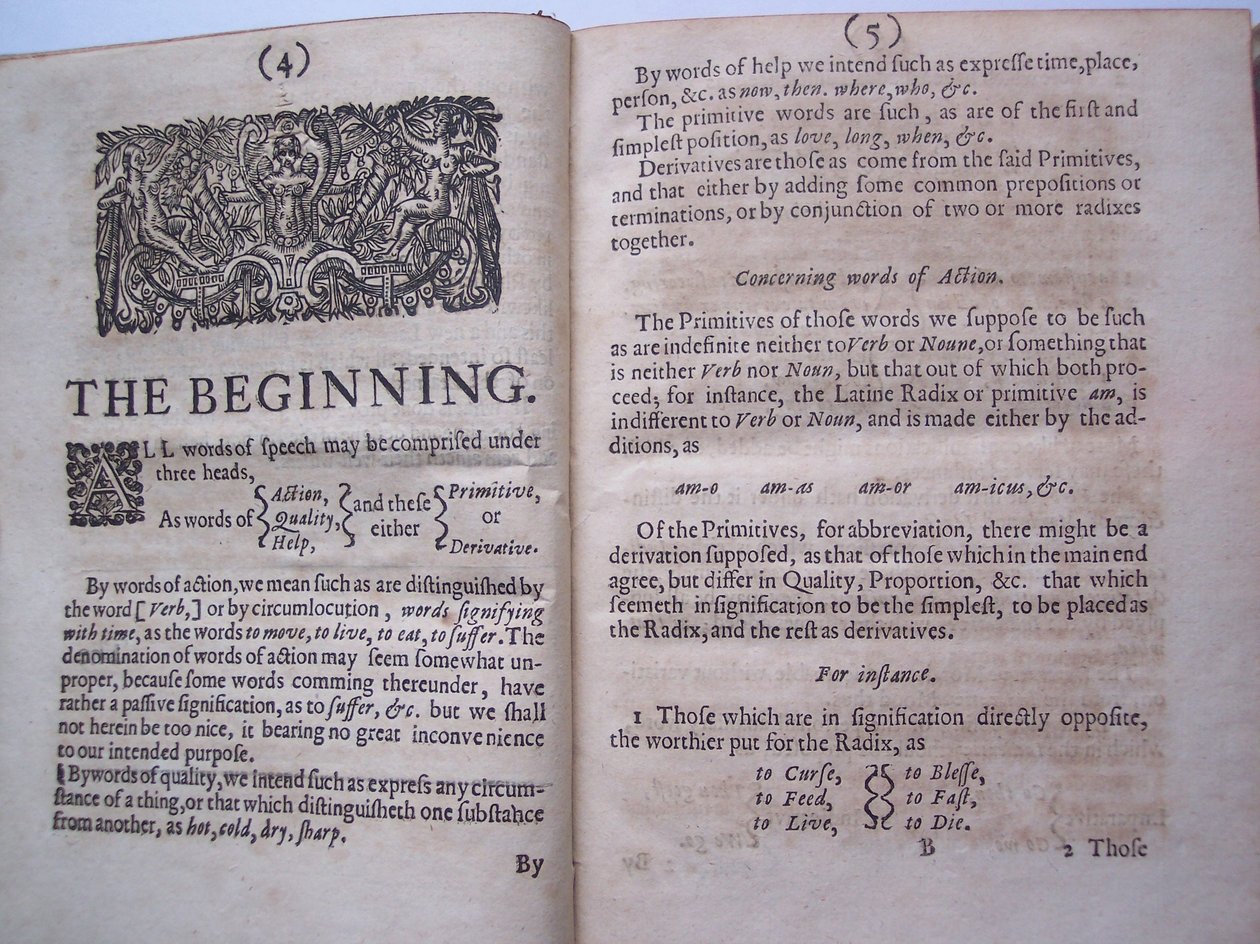 (4)
THE BEGINNING.
ALL words of ſpeech may be compriſed under
three heads,
Action, Primitive,
As words of Quality, and theſe either or
Help, Derivative.
By words of action, we mean ſuch as are diſtinguiſhed by
the word [Verb,] or by circumlocution, words ſignifying
with time, as the words to move, to live, to eat, to ſuffer. The
denomination of words of action may ſeem ſomewhat un-
proper, becauſe ſome words comming thereunder, have
rather a paſſive ſignification, as to ſuffer, &c. but we ſhall
not herein be too nice, it bearing no great inconvenience
to our intended purpoſe.
By words of quality, we intend ſuch as expreſs any circum-
ſtance of a thing, or that which diſtinguiſheth one ſubſtance
from another, as hot, cold, dry, ſharp.
By
(5)
By words of help we intend ſuch as expreſſe time, place,
perſon, &c. as now, then. where, who, &c.
The primitive words are ſuch, as are of the firſt and
ſimpleſt poſition, as love, long, when, &c.
Derivatives are thoſe as come from the ſaid Primitives,
and that either by adding ſome common prepoſitions or
terminations, or by conjunction of two or more radixes
together.
Concerning words of Action.
The Primitives of thoſe words we ſuppoſe to be ſuch
as are indefinite neither to Verb or Noune, or ſomething that
is neither Verb nor Noun, but that out of which both pro-
ceed; for inſtance, the Latine Radix or primitive am, is
indifferent to Verb or Noun, and is made either by the ad-
ditions, as
am-o am-as am-or am-icus, &c.
Of the Primitives, for abbreviation, there might be a
derivation ſuppoſed, as that of thoſe which in the main end
agree, but differ in Quality, Proportion, &c. that which
ſeemeth in ſignification to be the ſimpleſt, to be placed as
the Radix, and the reſt as derivatives.
For inſtance.
1 Thoſe which are in ſignification directly oppoſite,
the worthier put for the Radix, as
to Curſe, to Bleſſe,
to Feed, to Faſt,
to Live, to Die.
B 2 Thoſe